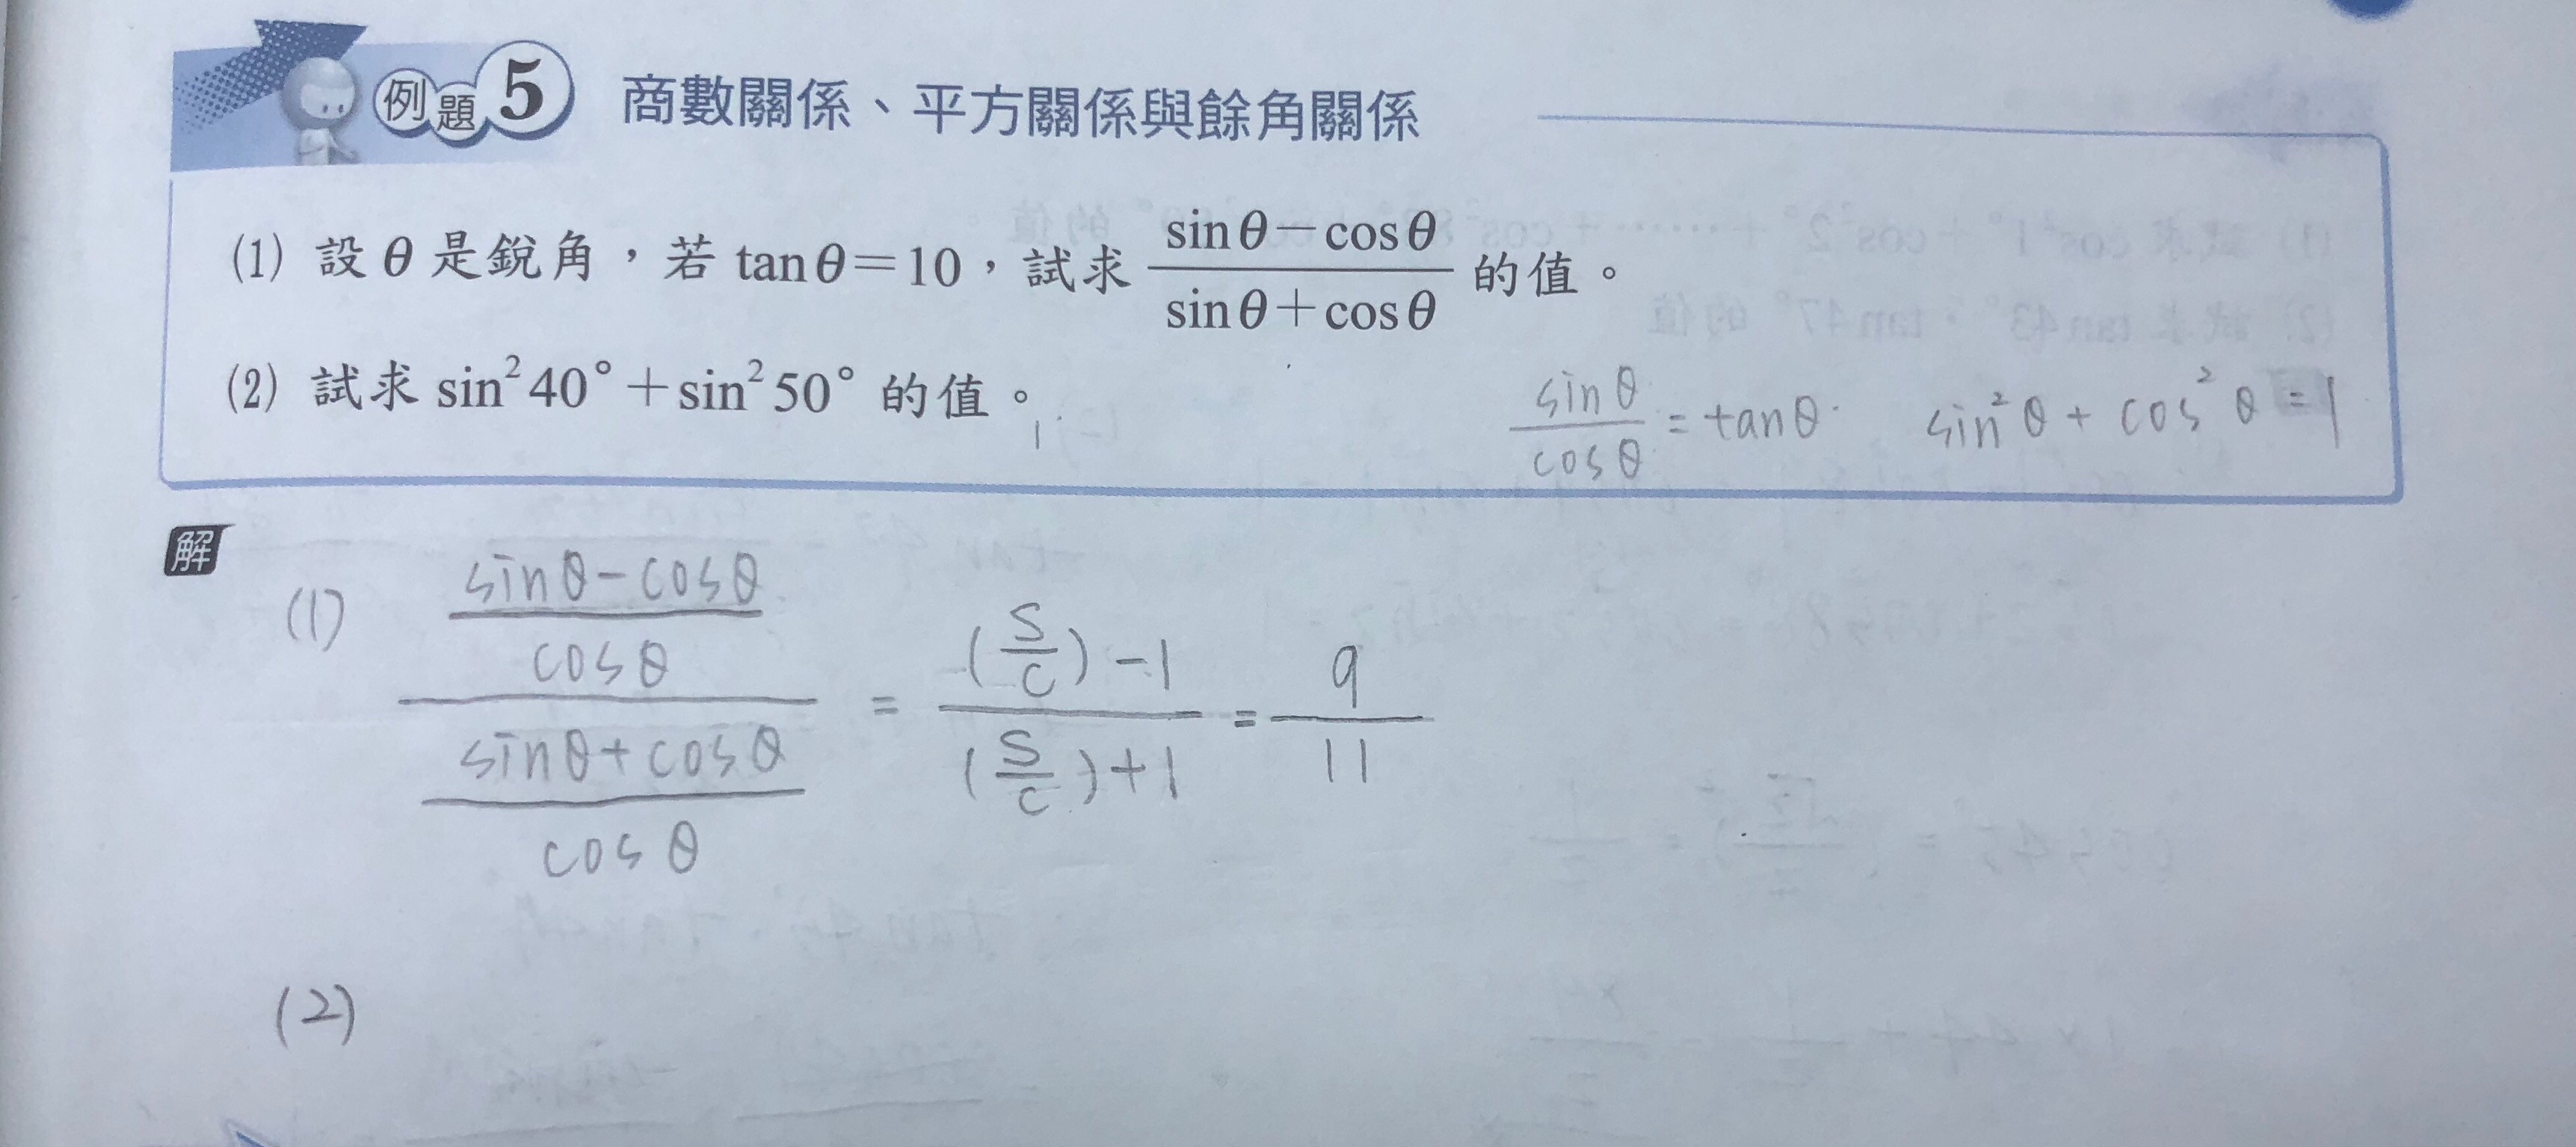 例題5 商數關係、平方關係與餘角關係
(1) 設θ是銳角，若 tanθ=10，試求 (sinθ−cosθ)/(sinθ+cosθ) 的值。
(2) 試求 sin²40°+sin²50° 的值。
1
sinθ/cosθ = tanθ sin²θ + cos²θ = 1
解
(1) ((sinθ−cosθ)/cosθ)/((sinθ+cosθ)/cosθ) = ((s/c)−1)/((s/c)+1) = 9/11
(2)